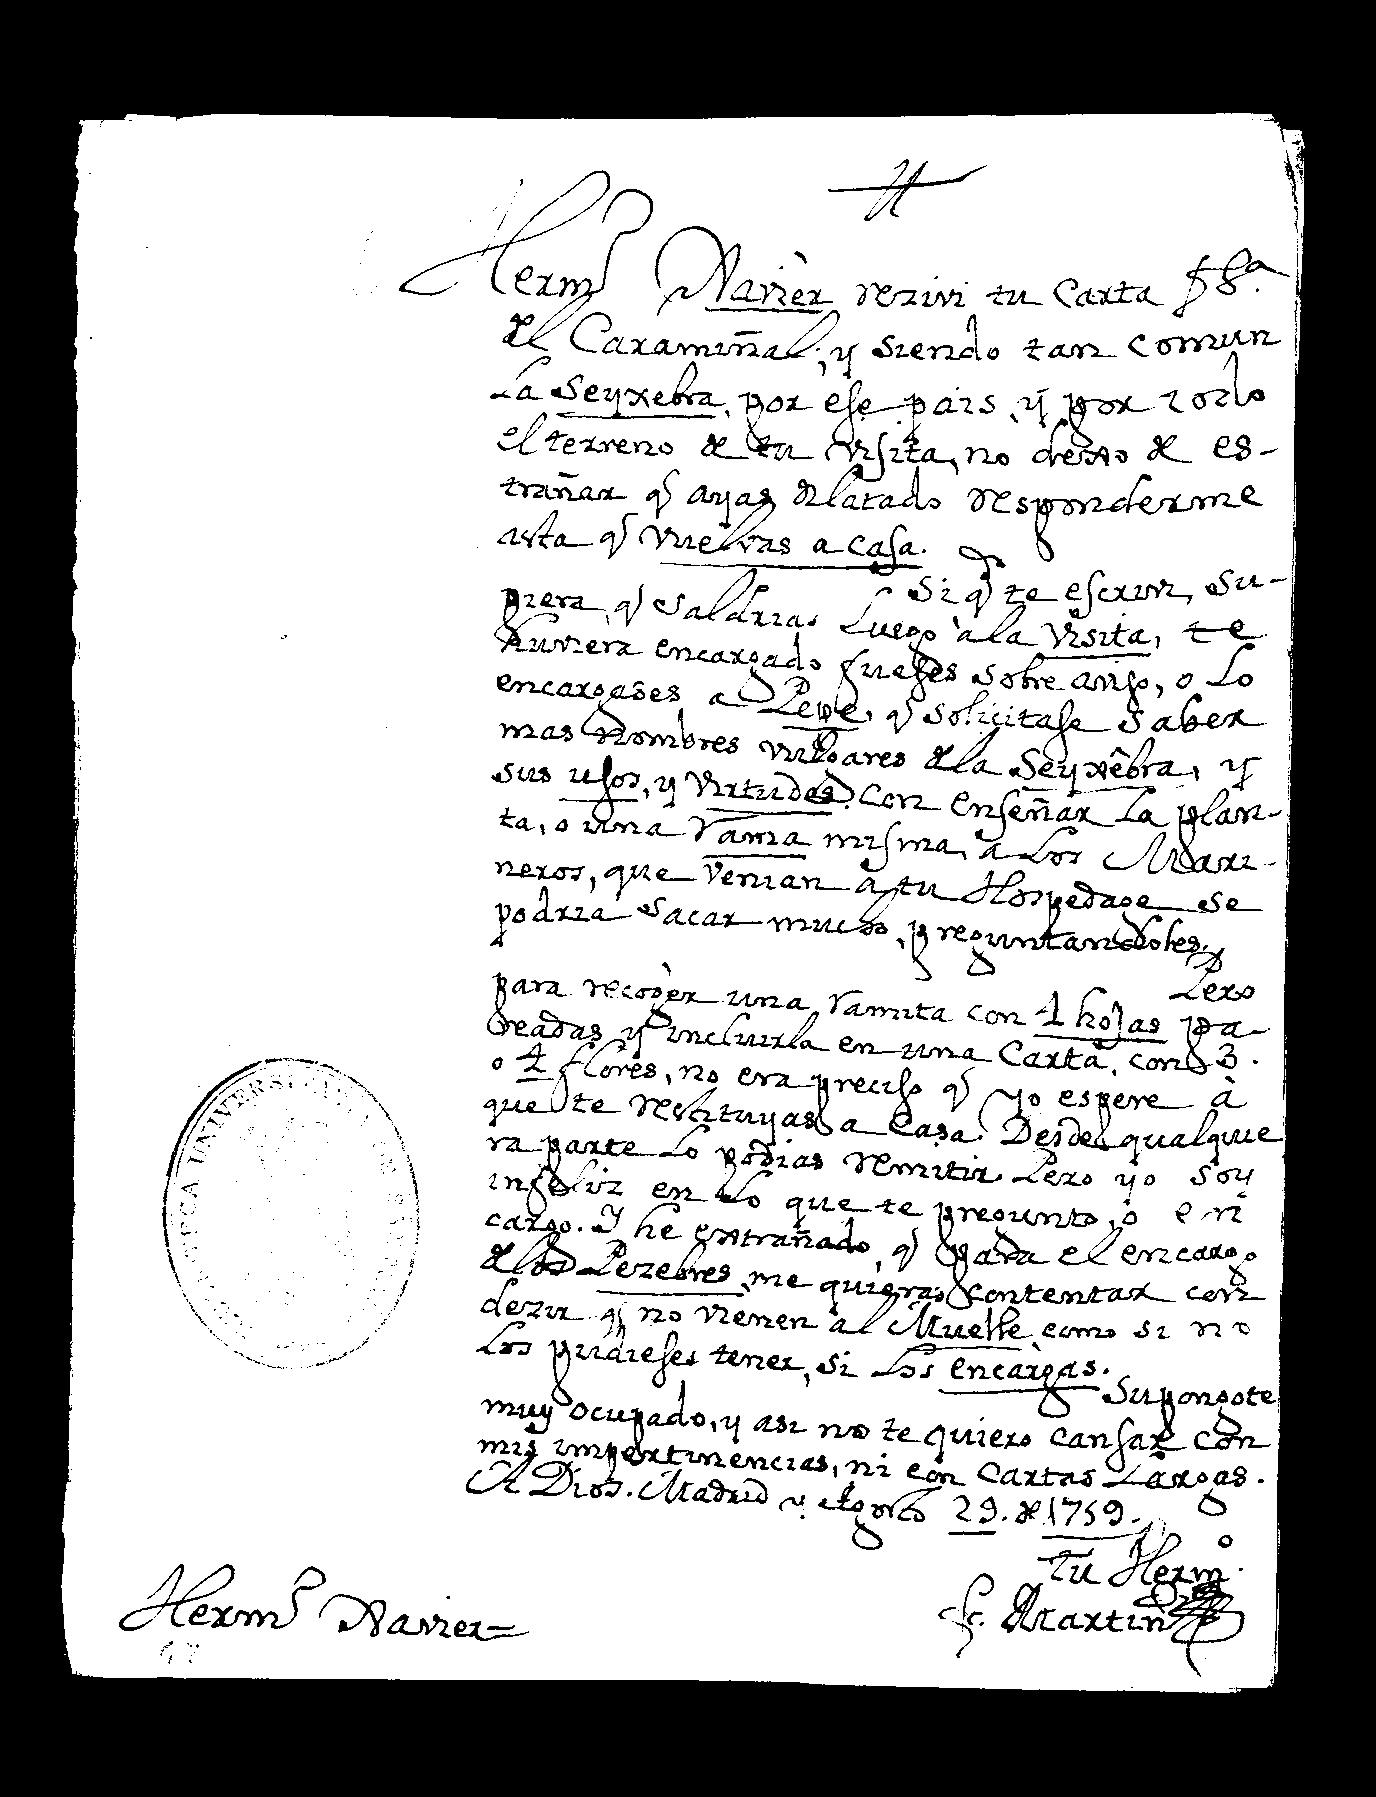 Herm.º Xavièr Rezivi tu Carta fhª.
del Caramiñal; y siendo tan comun
La Seyxebra, por ese pais, y por todo
el terreno de tu visita, no dexo de es-
trañar q.e ayas dilatado responderme
asta q.e vuelvas a casa.
Si q.do te escrivi, su-
piera q.e saldrias Luego à la visita, te
huviera encargado fueses sobre aviso, o Lo
encargases a Pepe, q.e solicitase saber
mas Nombres vulgares de la Seyxêbra, y
sus usos, y virtudes. Con enseñar La plan-
ta, o una rama misma, a Los Mari-
neros, que venian a tu Hospedage se
podria sacar mucho, preguntandoles.
Pero
para recogèr una ramita con 4 hojas pa-
readas y incluirla en una Carta, con 3.
o 4 flores, no era preciso q.e yo espere à
que te restituyas a Casa. Desde qualquie
ra parte Lo podias remitir. Pero yo soy
infeliz en Lo que te pregunto, o en
cargo. Y he extrañado, q.e para el encargo
de los Perebres, me quieras contentar con
dezir q.e no vienen al Muelle como si no
Los pudieses tener, si Los encargas.
Supongote
muy ocupado, y asi no te quiero cansar con
mis impertinencias, ni con Cartas Largas.
A Dios. Madrid y Agosto 29. de 1759.
tu Herm.º
Fr. Martin
Herm.º Xavier=